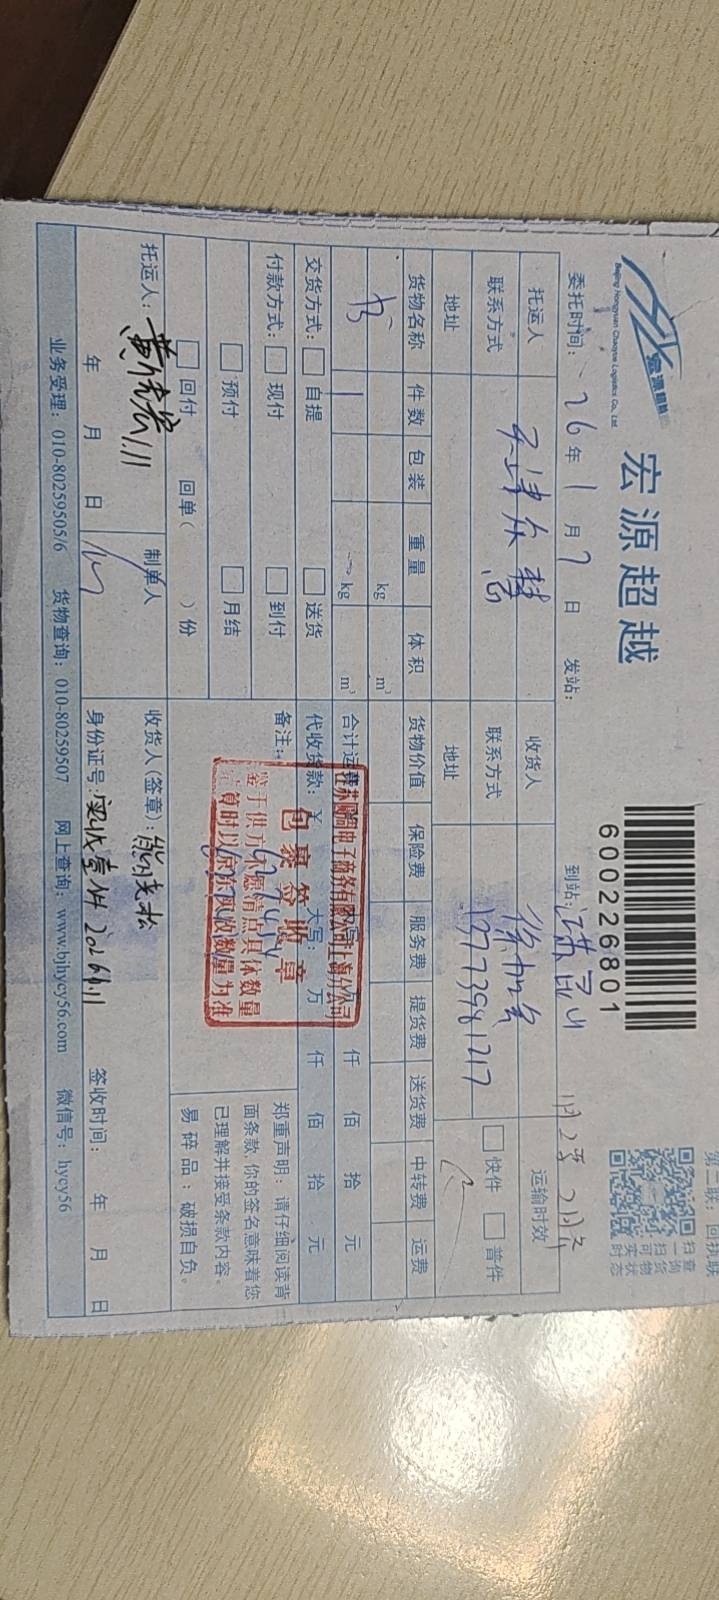 宏源超越
Beijing Hongyuan Chaoyue Logistics Co., Ltd.
宏源超越
600226801
第三联：回执联
扫一扫可实时
查询货物状态
委托时间： 26 年 1 月 7 日 发站： 到站：江苏昆山
托运人 天津 收货人 徐加 运输时效
联系方式 联系方式 13773981217 快件 普件
地址 地址
货物名称 件数 包装 重量 体积 货物价值 保险费 服务费 提货费 送货费 中转费 运费
书 1 kg m³
kg m³ 合计运费 仟 佰 拾 元
交货方式： 自提 送货 代收货款：￥ 大写： 万 仟 佰 拾 元
付款方式： 现付 到付 备注：
预付 月结
回付 回单（ ）份
电子商务有限公司上海分公司
包裹签收章
鉴于供方不愿清点具体数量
算时以京东实收数量为准
郑重声明：请仔细阅读背
面条款，你的签名意味着您
已理解并接受条款内容。
易碎品：破损自负。
托运人： 制单人 收货人（签章）：
年 月 日 身份证号： 签收时间： 年 月 日
业务受理：010-80259505/6 货物查询：010-80259507 网上查询：www.bjhycy56.com 微信号：hycy56